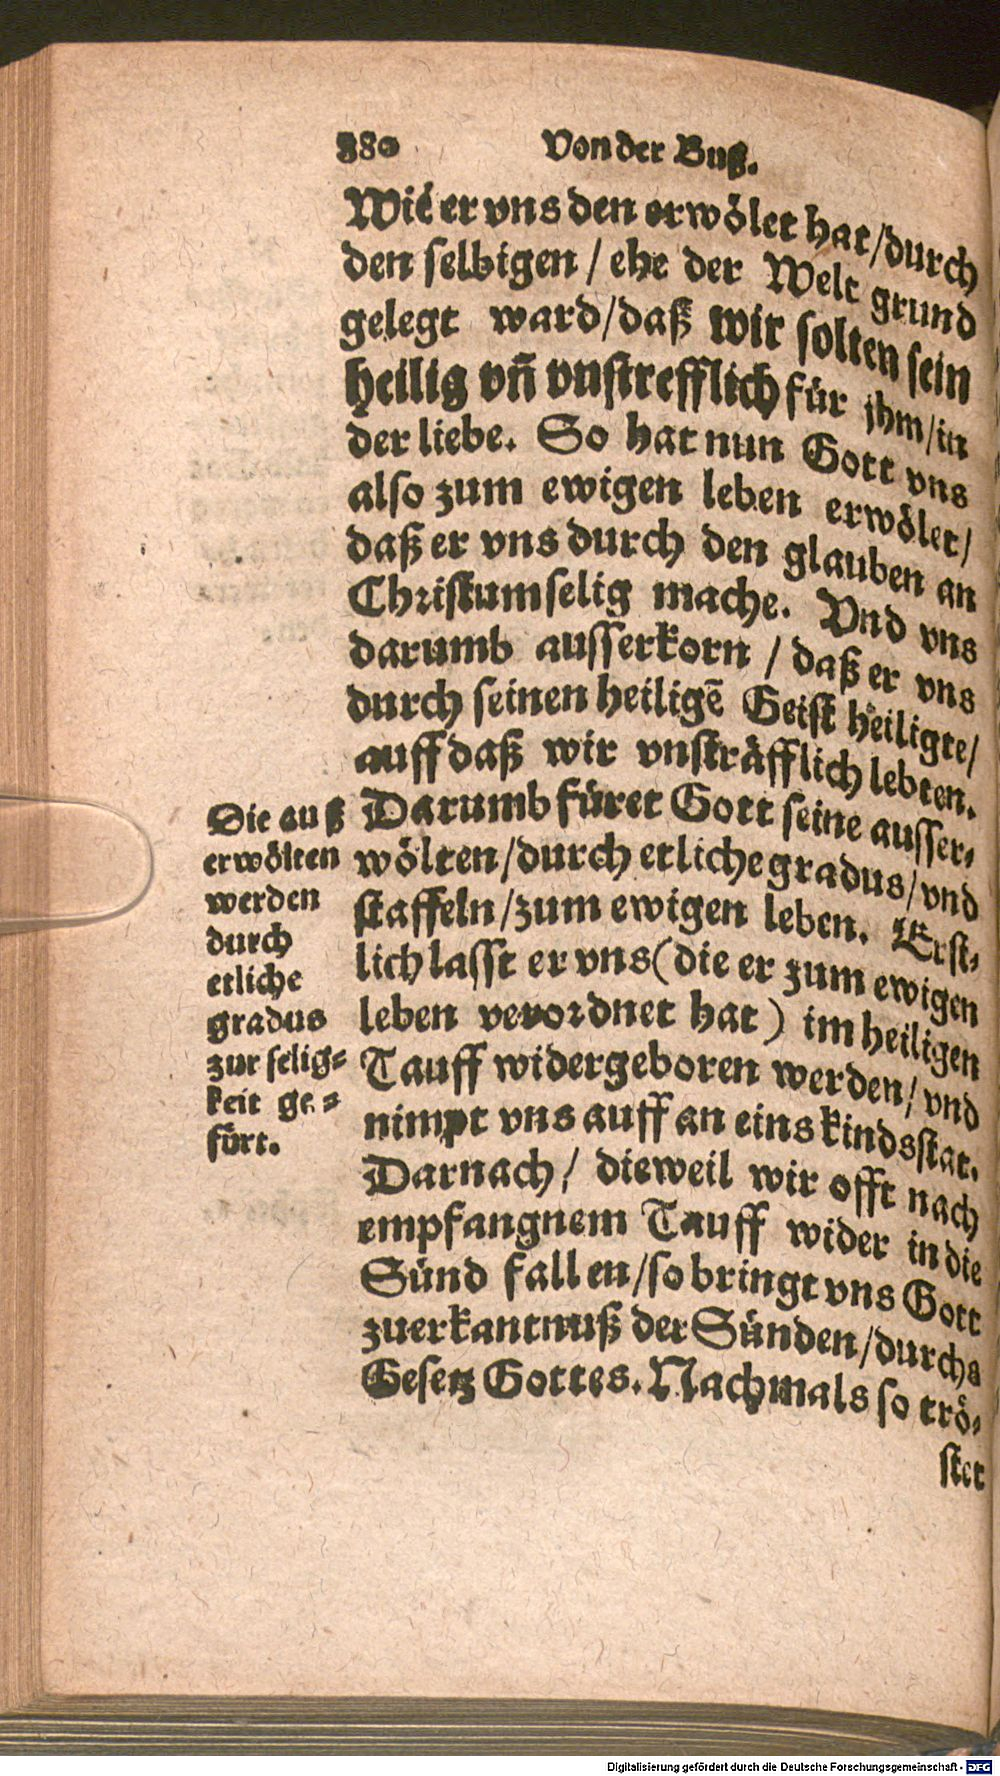 380 Von der Buß.
Wie er vns den erwölet hat/durch
den selbigen / ehe der Welt grund
gelegt ward/daß wir solten sein
heilig vñ vnstrefflich für jhm/in
der liebe. So hat nun Gott vns
also zum ewigen leben erwölet/
daß er vns durch den glauben an
Christum selig mache. Vnd vns
darumb ausserkorn / daß er vns
durch seinen heiligē Geist heiligte/
auff daß wir vnsträfflich lebten.
Darumb füret Gott seine ausser-
wölten/durch etliche gradus/vnd
staffeln/zum ewigen leben. Erst-
lich lasst er vns (die er zum ewigen
leben verordnet hat) im heiligen
Tauff widergeboren werden/ vnd
nimpt vns auff an eins kindsstat.
Darnach/ dieweil wir offt nach
empfangnem Tauff wider in die
Sünd fallen/so bringt vns Gott
zu erkantnuß der Sünden/durchs
Gesetz Gottes. Nachmals so trö-
stet
Die auß
erwölten
werden
durch
etliche
gradus
zur selig-
keit ge-
fürt.
Digitalisierung gefördert durch die Deutsche Forschungsgemeinschaft - DFG